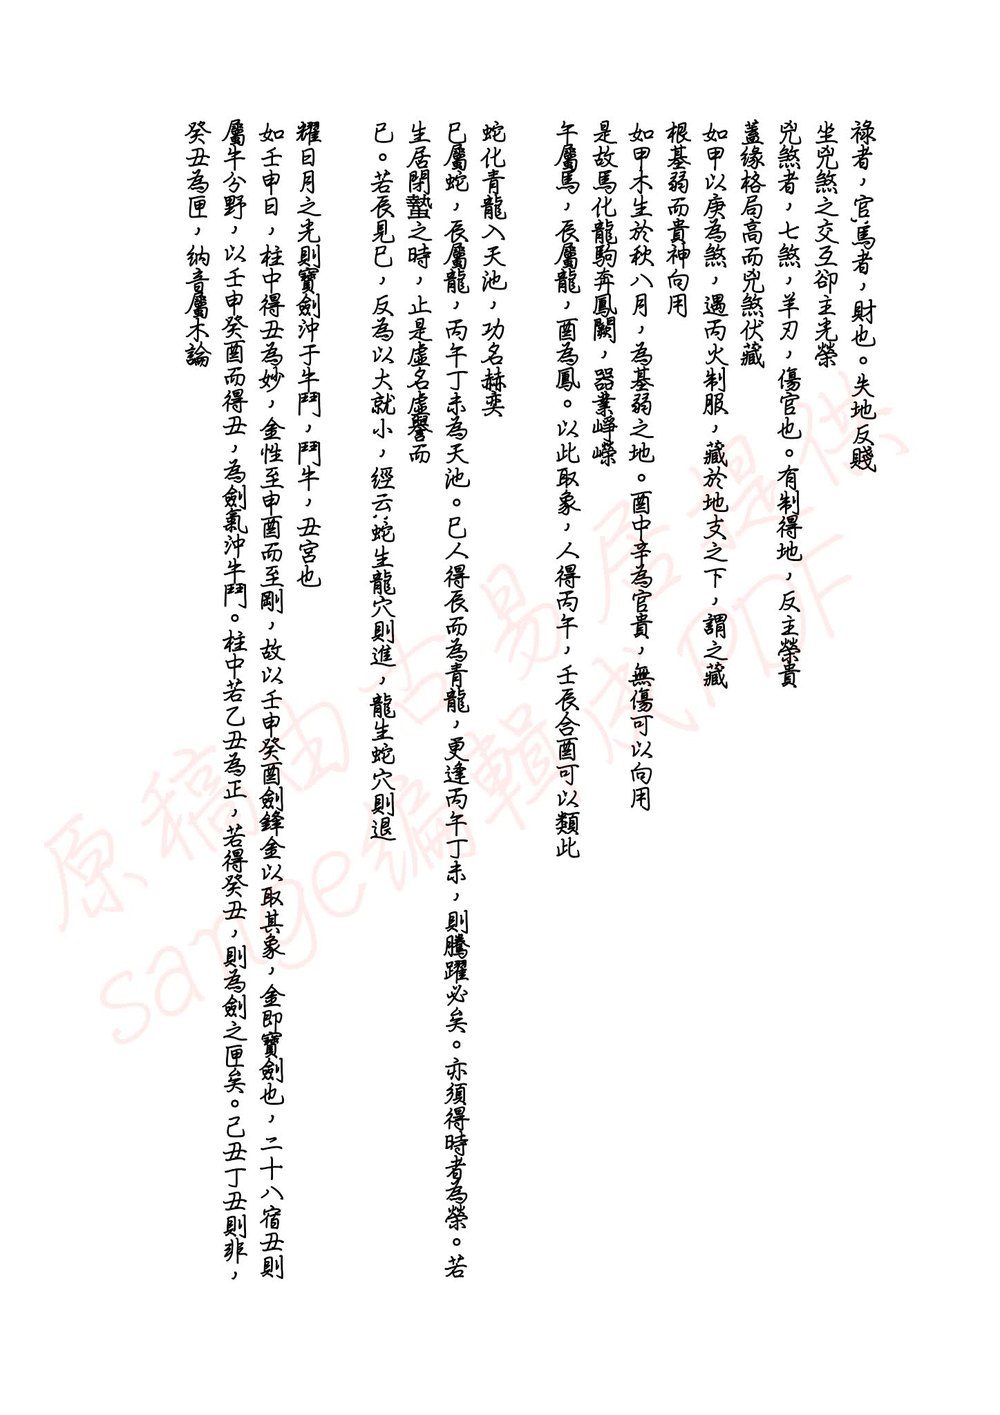 祿者，官，馬者，財也。失地反賤
坐兇煞之交互卻主光榮
兇煞者，七煞，羊刃，傷官也。有制得地，反主榮貴
蓋緣格局高而兇煞伏藏
如甲以庚為煞，遇丙火制服，藏於地支之下，謂之藏
根基弱而貴神向用
如甲木生於秋八月，為基弱之地。酉中辛為官貴，無傷可以向用
是故馬化龍駒奔鳳闕，器業崢嶸
午屬馬，辰屬龍，酉為鳳。以此取象，人得丙午，壬辰合酉可以類此
蛇化青龍入天池，功名赫奕
巳屬蛇，辰屬龍，丙午丁未為天池。巳人得辰而為青龍，更逢丙午丁未，則騰躍必矣。亦須得時者為榮。若
生居閉蟄之時，止是虛名虛譽而
已。若辰見巳，反為以大就小，經云：蛇生龍穴則進，龍生蛇穴則退
耀日月之光則寶劍沖于牛鬥，鬥牛，丑宮也
如壬申日，柱中得丑為妙，金性至申酉而至剛，故以壬申癸酉劍鋒金以取其象，金即寶劍也，二十八宿丑則
屬牛分野，以壬申癸酉而得丑，為劍氣沖牛鬥。柱中若乙丑為正，若得癸丑，則為劍之匣矣。己丑丁丑則非，
癸丑為匣，納音屬木論
原稿由古易居提供
sange編輯成PDF